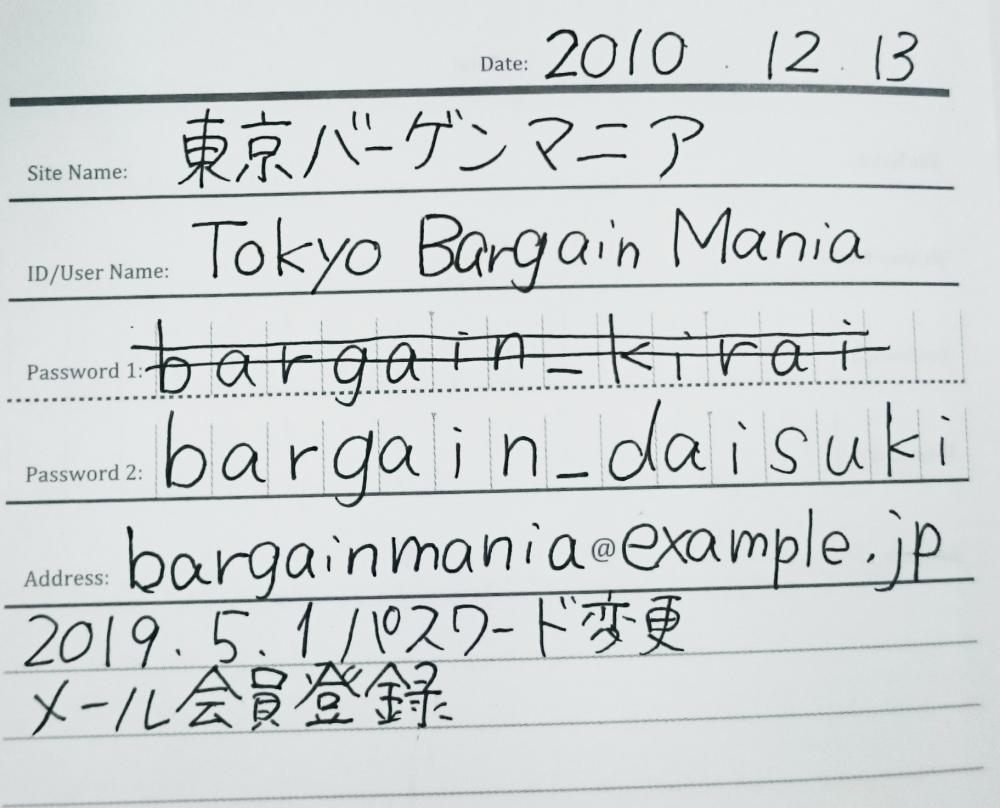 Date: 2010 . 12 . 13
Site Name: 東京バーゲンマニア
ID/User Name: Tokyo Bargain Mania
Password 1: bargain_kirai
Password 2: bargain_daisuki
Address: bargainmania@example.jp
2019.5.1パスワード変更
メール会員登録